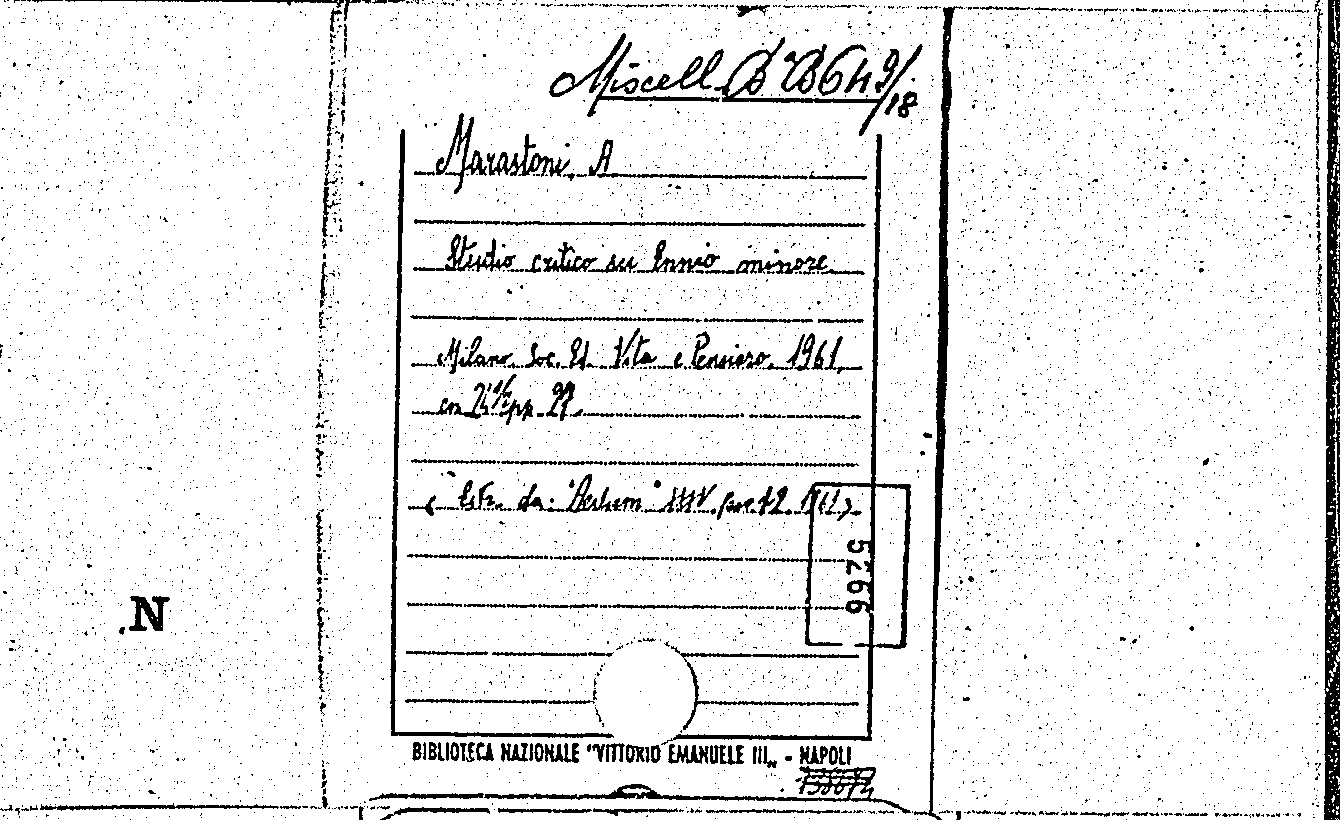 Miscell. B. B 649/18
Marastoni, A
Studio critico su Ennio minore.
Milano. Soc. Ed. Vita e Pensiero. 1961.
cm 24½ pp. 27.
( Estr. da: "Aevum" XXXV. fasc. 1-2. 1961).
5266
N
BIBLIOTECA NAZIONALE "VITTORIO EMANUELE III„ - NAPOLI